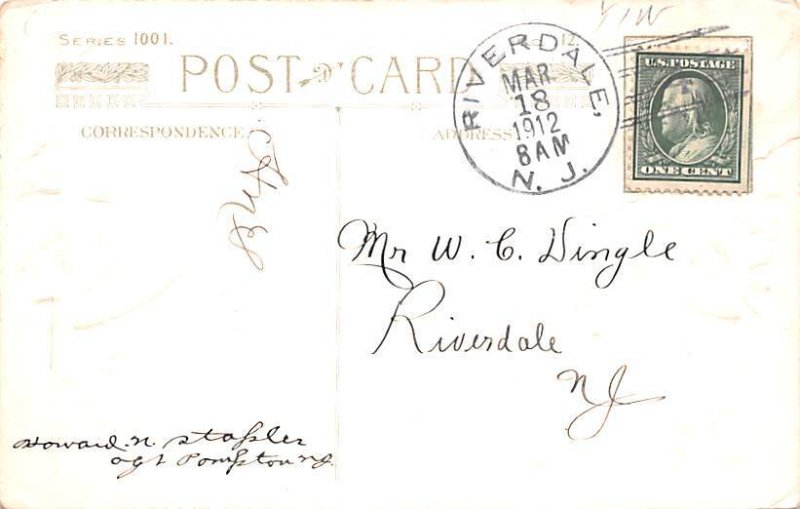 SERIES 1001.
POST CARD
CORRESPONDENCE
ADDRESS
RIVERDALE,
MAR
18
1912
8AM
N. J.
U.S. POSTAGE
ONE CENT
Mr W. C. Dingle
Riverdale
NJ
Howard. N. Stapler
agt Pompton NJ.